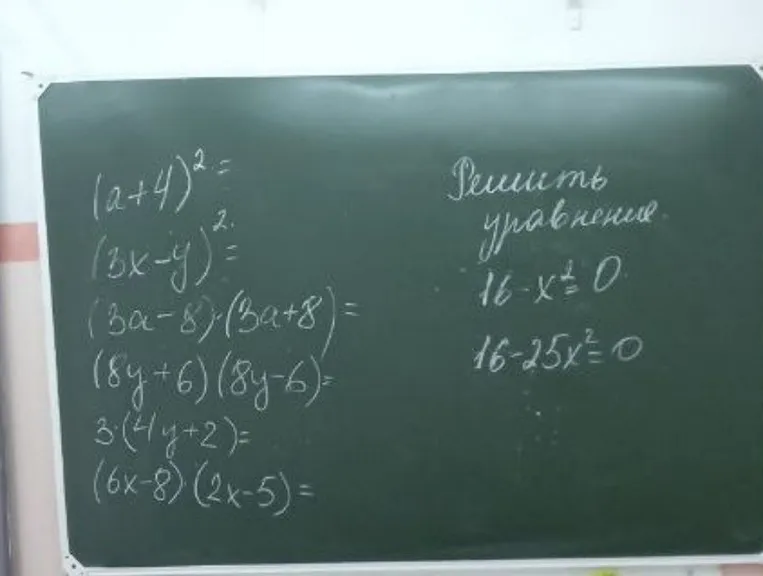 (a+4)²=
(3x-y)²=
(3a-8)·(3a+8)=
(8y+6)(8y-6)=
3·(4y+2)=
(6x-8)·(2x-5)=
Решить
уравнения.
16-x²=0
16-25x²=0